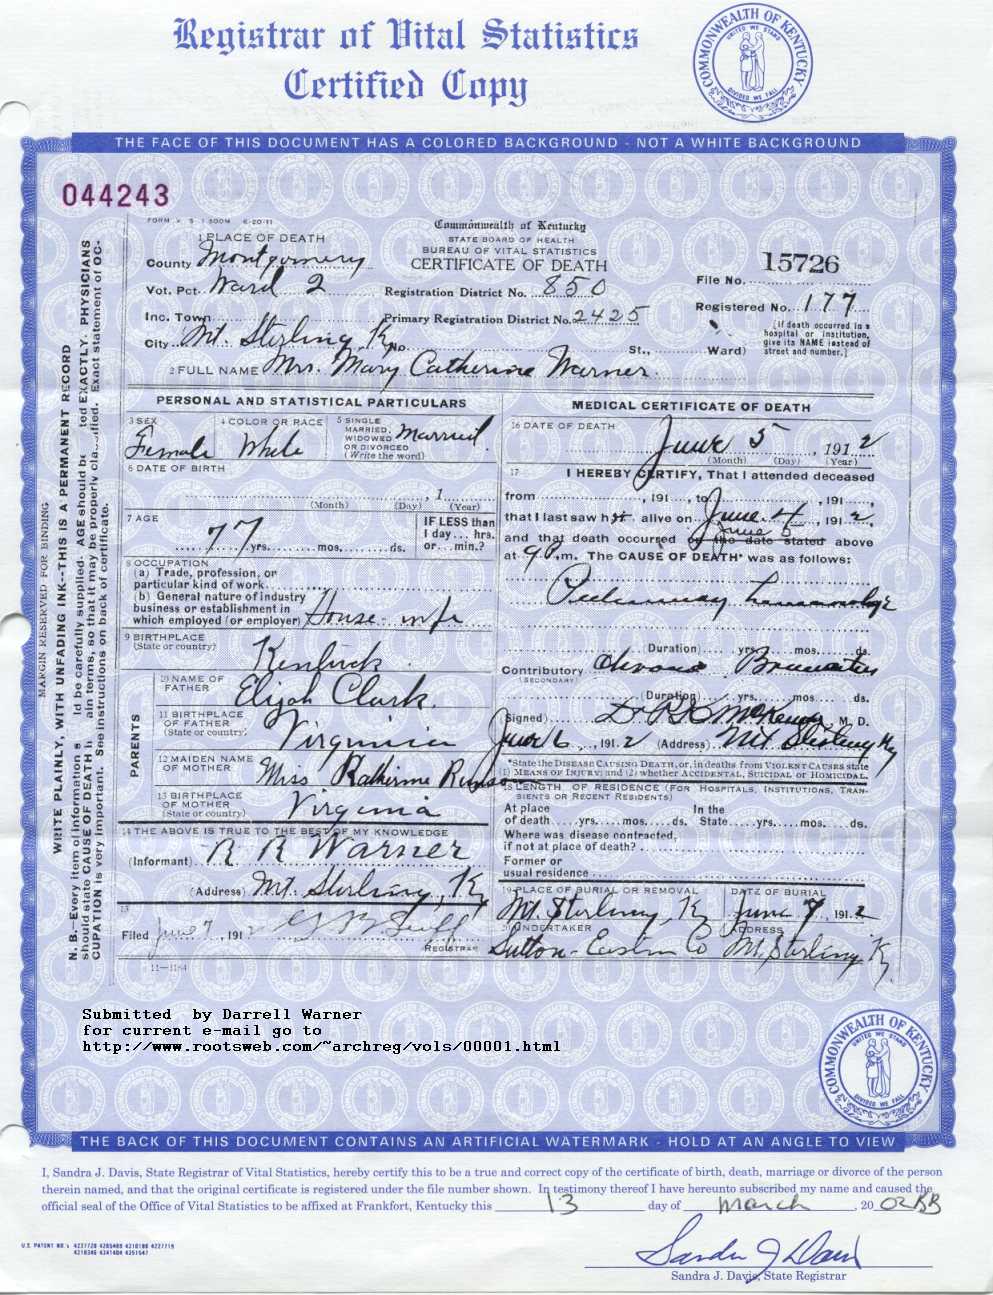 Registrar of Vital Statistics
Certified Copy
COMMONWEALTH OF KENTUCKY
UNITED WE STAND
DIVIDED WE FALL
THE FACE OF THIS DOCUMENT HAS A COLORED BACKGROUND - NOT A WHITE BACKGROUND
044243
1 PLACE OF DEATH
County Montgomery
Vot. Pct. Ward 2
Inc. Town
City Mt. Sterling, Ky No. St., Ward)
Commonwealth of Kentucky
STATE BOARD OF HEALTH
BUREAU OF VITAL STATISTICS
CERTIFICATE OF DEATH
Registration District No. 850
Primary Registration District No. 2425
File No. 15726
Registered No. 177
[If death occurred in a
hospital or institution,
give its NAME instead of
street and number.]
2 FULL NAME Mrs. Mary Catherine Warner
PERSONAL AND STATISTICAL PARTICULARS
3 SEX
Female
4 COLOR OR RACE
White
5 SINGLE
MARRIED,
WIDOWED
OR DIVORCED
(Write the word)
Married
6 DATE OF BIRTH
, 1
(Month) (Day) (Year)
7 AGE
77 yrs. mos. ds.
IF LESS than
1 day... hrs.
or... min.?
8 OCCUPATION
(a) Trade, profession, or
particular kind of work
(b) General nature of industry
business or establishment in
which employed (or employer) House-wife
9 BIRTHPLACE
(State or country)
10 NAME OF
FATHER
Elijah Clark.
11 BIRTHPLACE
OF FATHER
(State or country)
Virginia
12 MAIDEN NAME
OF MOTHER
Miss Katherine
13 BIRTHPLACE
OF MOTHER
(State or country)
Virginia
PARENTS
14 THE ABOVE IS TRUE TO THE BEST OF MY KNOWLEDGE
(Informant) R R Warner
(Address) Mt. Sterling, Ky
15
Filed June 7, 191
REGISTRAR
11-11-4
MEDICAL CERTIFICATE OF DEATH
16 DATE OF DEATH
June 5, 1912
(Month) (Day) (Year)
17 I HEREBY CERTIFY, That I attended deceased
from , 191 , to , 191 ,
that I last saw h alive on June 4, 1912,
June 5
and that death occurred on the date stated above
at 9 P.m. The CAUSE OF DEATH* was as follows:
(Duration) yrs. mos. ds.
Contributory
(SECONDARY)
(Duration) yrs. mos. ds.
(Signed) M. D.
June 6, 1912 (Address) Mt Sterling Ky
*State the DISEASE CAUSING DEATH, or, in deaths from VIOLENT CAUSES state
(1) MEANS OF INJURY; and (2) whether ACCIDENTAL, SUICIDAL or HOMICIDAL.
18 LENGTH OF RESIDENCE (FOR HOSPITALS, INSTITUTIONS, TRAN-
SIENTS OR RECENT RESIDENTS)
At place In the
of death yrs. mos. ds. State yrs. mos. ds.
Where was disease contracted,
if not at place of death?
Former or
usual residence
19 PLACE OF BURIAL OR REMOVAL
Mt. Sterling, Ky
DATE OF BURIAL
June 7, 1912
20 UNDERTAKER
Sutton-Eastin Co
ADDRESS
Mt. Sterling, Ky.
MARGIN RESERVED FOR BINDING
WRITE PLAINLY, WITH UNFADING INK--THIS IS A PERMANENT RECORD
Submitted by Darrell Warner
for current e-mail go to
http://www.rootsweb.com/~archreg/vols/00001.html
COMMONWEALTH OF KENTUCKY
UNITED WE STAND
DIVIDED WE FALL
THE BACK OF THIS DOCUMENT CONTAINS AN ARTIFICIAL WATERMARK - HOLD AT AN ANGLE TO VIEW
I, Sandra J. Davis, State Registrar of Vital Statistics, hereby certify this to be a true and correct copy of the certificate of birth, death, marriage or divorce of the person
therein named, and that the original certificate is registered under the file number shown. In testimony thereof I have hereunto subscribed my name and caused the
official seal of the Office of Vital Statistics to be affixed at Frankfort, Kentucky this 13 day of March, 20 02 BB
Sandra J Davis
Sandra J. Davis, State Registrar